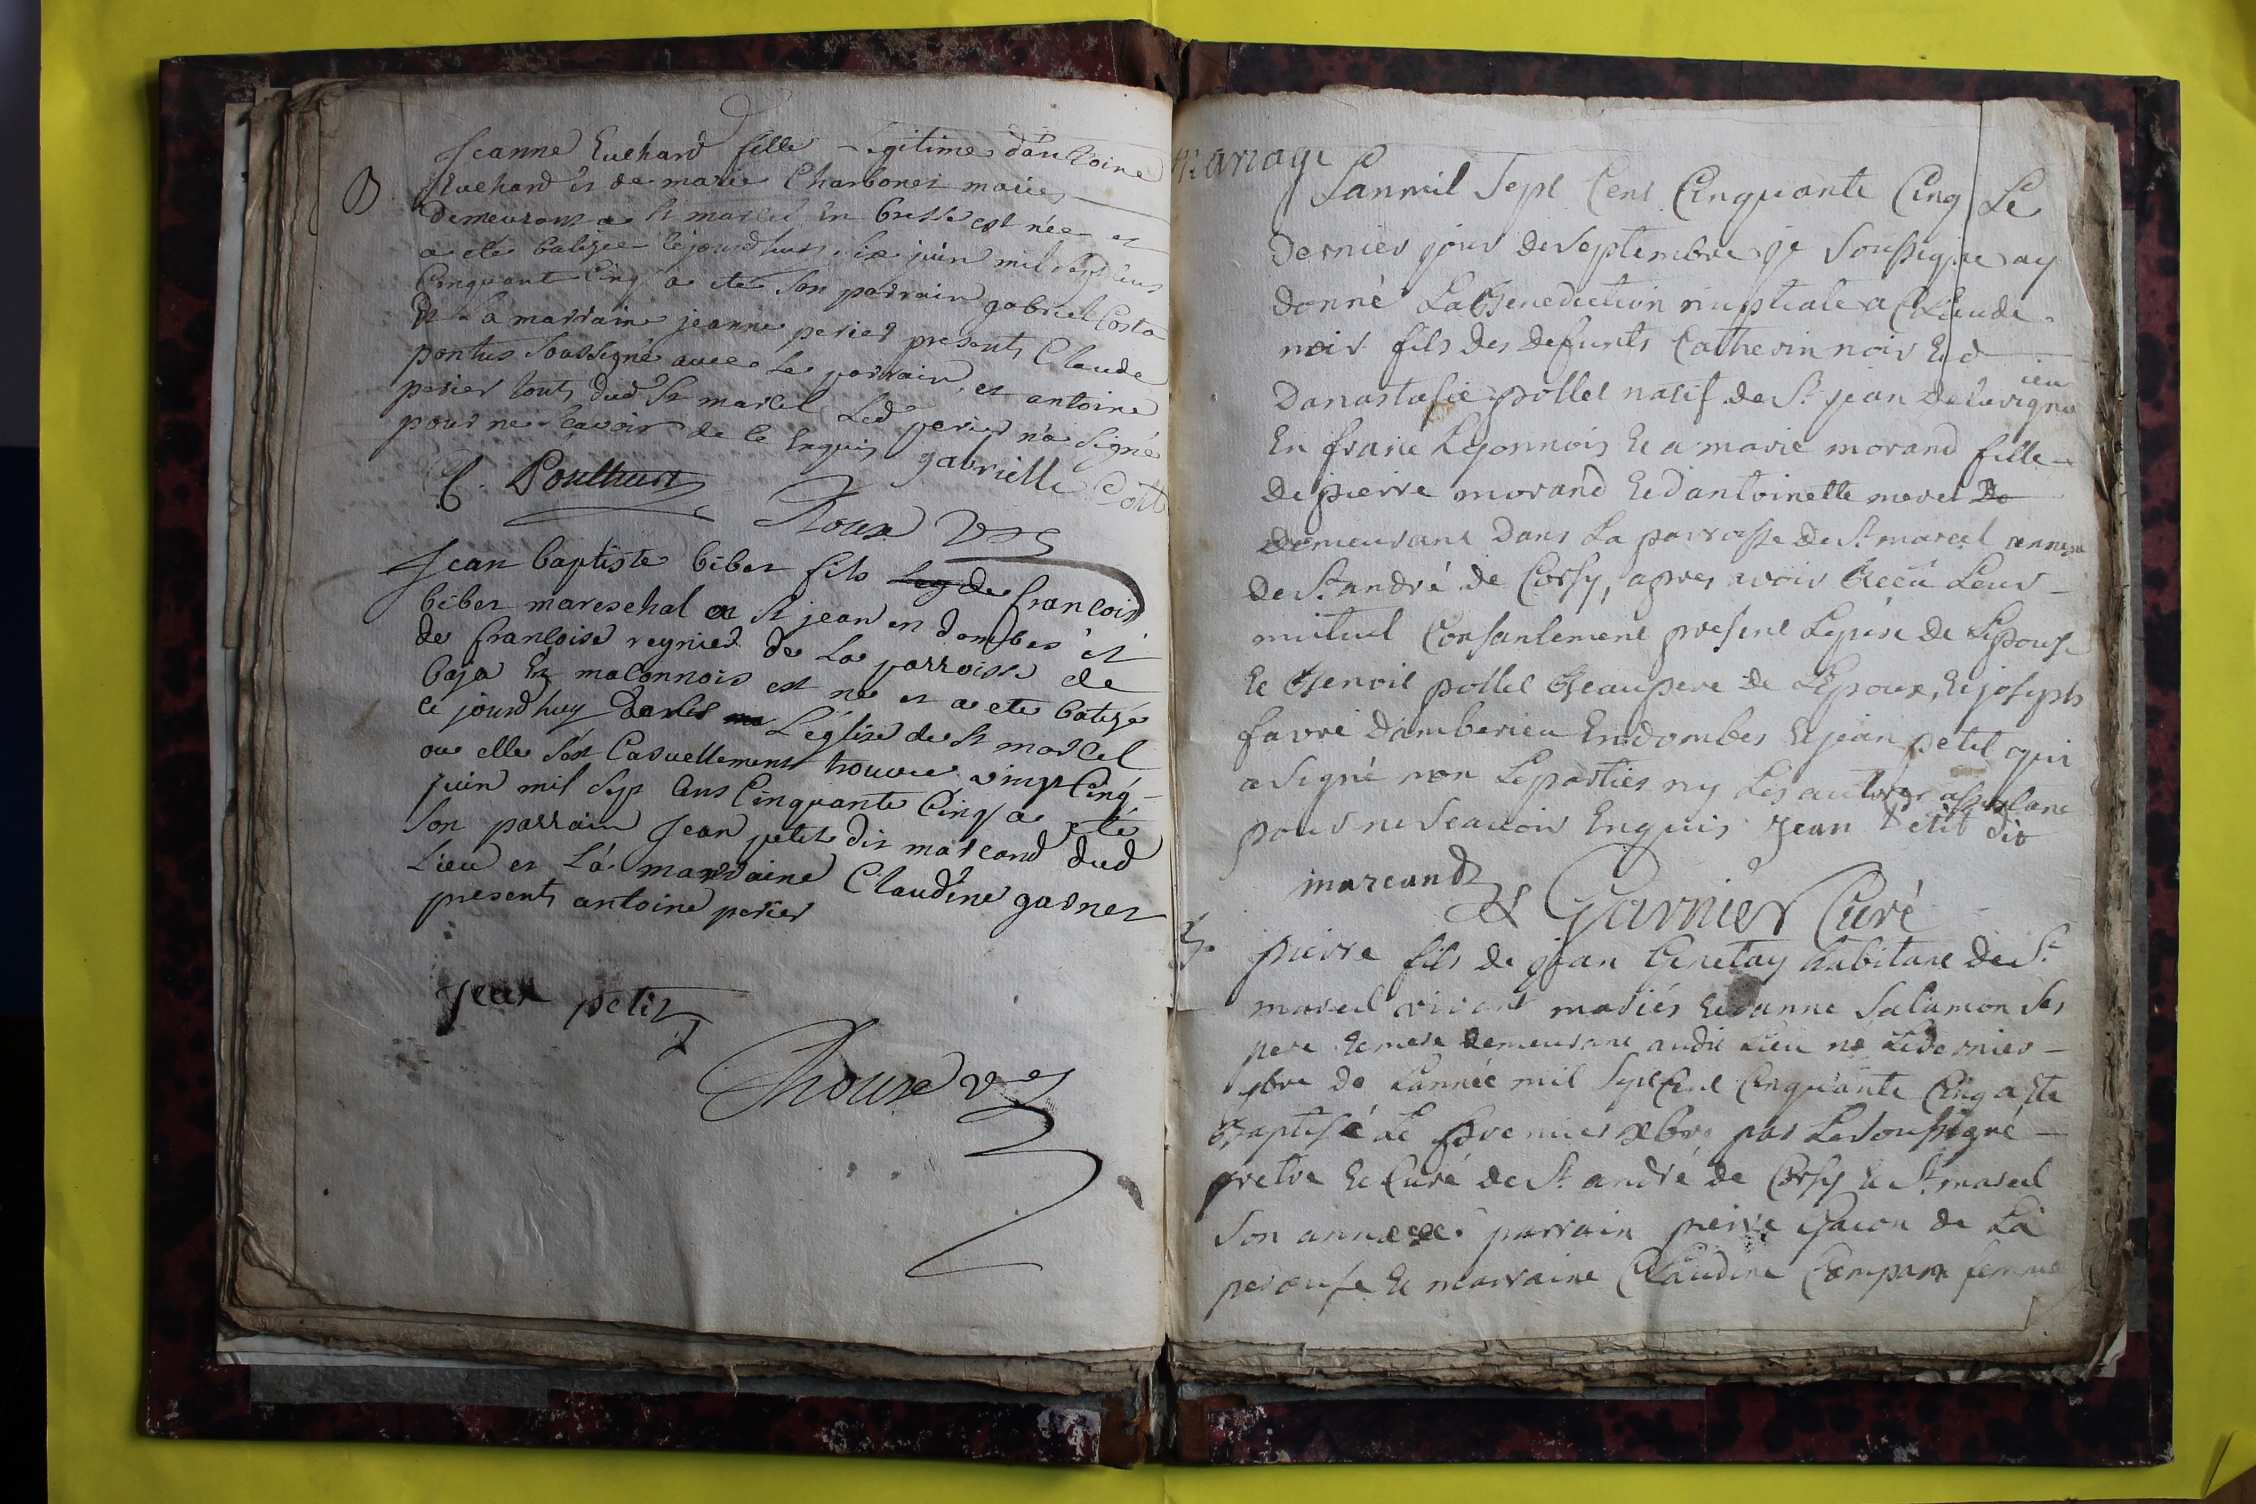 B
Jeanne Euchard fille Legitime d'antoine
Euchard et de marie Charbonet mariés
Demeurant a St marcel En bresse est née et
a ete batizee cejourdhuy six juin mil sept cens
Cinquante Cinq a ete Son parrain gabriel Costa
Et La marraine jeanne perier presents Claude
ponthus Soussigné avec Le parrain et antoine
perier touts dud St marcel Led perier n'a Signé
pour ne Scavoir de ce Enquis gabrielle Cott
C. Ponthus
Roux
Jean baptiste bibet fils de francois
bibet mareschal a St jean en dombes et
de francoise reynier de La parroisse de
baja En maconnois est né et a ete batizé
ce jourdhuy dans L'église de St marcel
ou elle sest Casuellement trouvee vingt Cinq
juin mil Sept Cens Cinquante Cinq a ete
Son parrain Jean petit dit marcand dud
Lieu et La marraine Claudine garnet
presents antoine perier
Jean petit
Roux
mariage
Lanmil Sept Cent Cinquante Cinq Le
Dernier jour de Septembre je Soussigné ay
Donné La Benediction nuptiale a Claude
noir fils des defunts Catherin noir Et
Danastasie pollet natif de St jean de
En franc Lyonnois Et a marie morand fille
De pierre morand Et dantoinette morel
Demeurant Dans La parroisse de St marcel annexe
de St andré de Corsy, apres avoir Reçu Leur
mutuel Consantement present Le pere de L'Epouse
Et Benoit pollet Beaupere de L'Epoux, Et joseph
favre Damberieu En dombes Et jean petit qui
a Signé non Les parties ny Les autres assistans
pour ne Scavoir Enquis Jean Petit dit
marcand
Garnier Curé
B.
pierre fils de jean Genetay habitant de St
marcel vivans mariés Et danne Salamon Ses
pere Et mere demeurant audit Lieu né Le dernier
9bre de Lannée mil Sept Cent Cinquante Cinq a ete
Baptisé Le premier Xbre par Le Soussigné
pretre Et Curé de St andré de Corsy Et St marcel
Son annexe. parrain pierre Gacon de La
perouse Et marraine Claudine femme